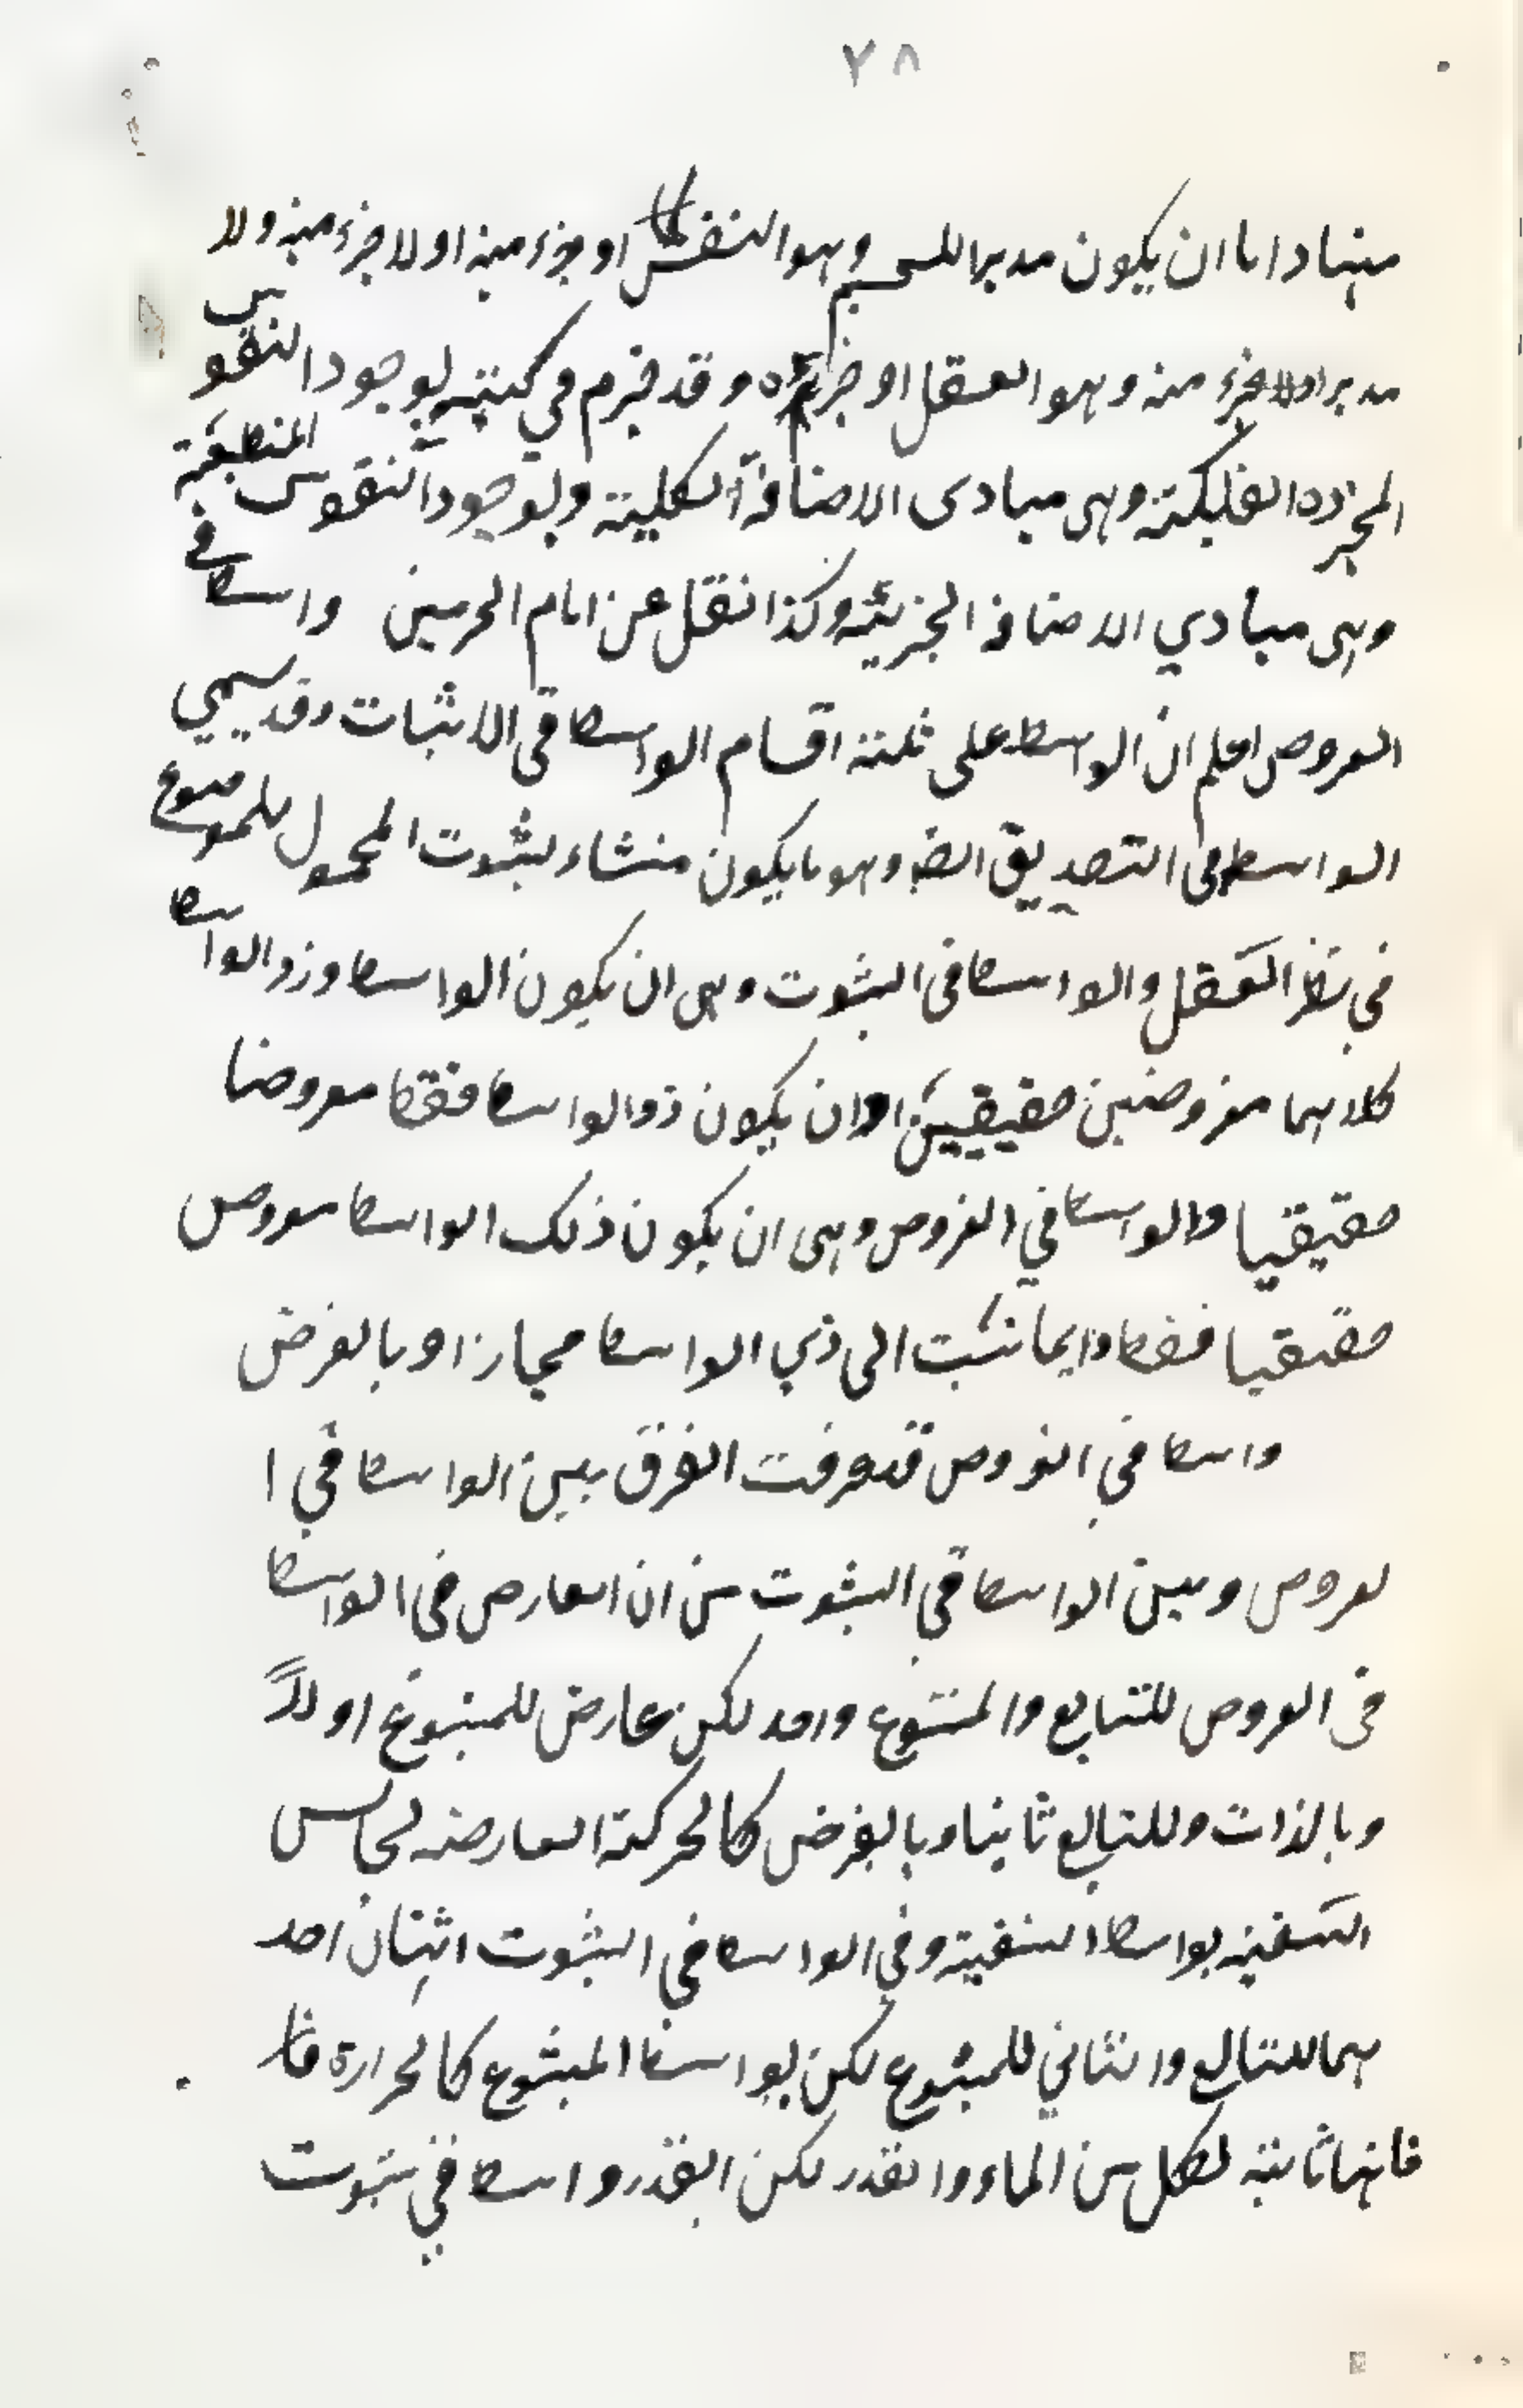 ٧٨
منها و اما ان يكون مدبرا للجسم وهو النفس او جزء منه او لا جزء منه ولا
مدبرا ولا جزء منه وهو العقل او جزءه وقد جزم في كتبه لوجود النفوس
المجرده الفلكية وهى مبادى الاضافة الكلية ولوجود النفوس المنطبعة
وهى مبادي الاضافه الجزيئة وكذا نقل عن امام الحرمين واسطا في
العروض اعلم ان الواسطه على ثلثة اقسام الواسطا في الاثبات وقد يسمي
الواسطه في التصديق ايضا وهو ما يكون منشاء لثبوت المحمول للموضوع
في نظر العقل والواسطا في الثبوت وهى ان يكون الواسطا وذو الواسطا
كلاهما معروضين حقيقيين او ان يكون ذو الواسطا فقط معروضا
حقيقيا والواسطا في العروض وهى ان يكون ذلك الواسطا معروض
حقيقيا فقط وايما نسبت الى ذي الواسطا مجازا وبالعرض
واسطا في العروض قد عرفت الفرق بين الواسطا في ا
لعروض وبين الواسطا في الثبوت من ان العارض في الواسطا
في العروض للتابع والمتبوع واحد لكن عارض للمتبوع اولاً
وبالذات وللتابع ثانيا وبالعرض كالحركة العارضه لجالس
السفينه بواسطا السفينة وفي الواسطا في الثبوت اثنان احد
هما للتابع والثاني للمتبوع لكن بواسطا المتبوع كالحرارة فا
فانها ثابته لكل من الماء والقدر لكن القدر واسطا في ثبوت